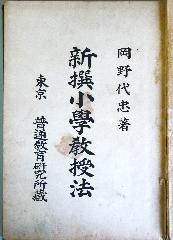 岡野代忠著
新撰小學教授法
東京 普通教育研究所藏